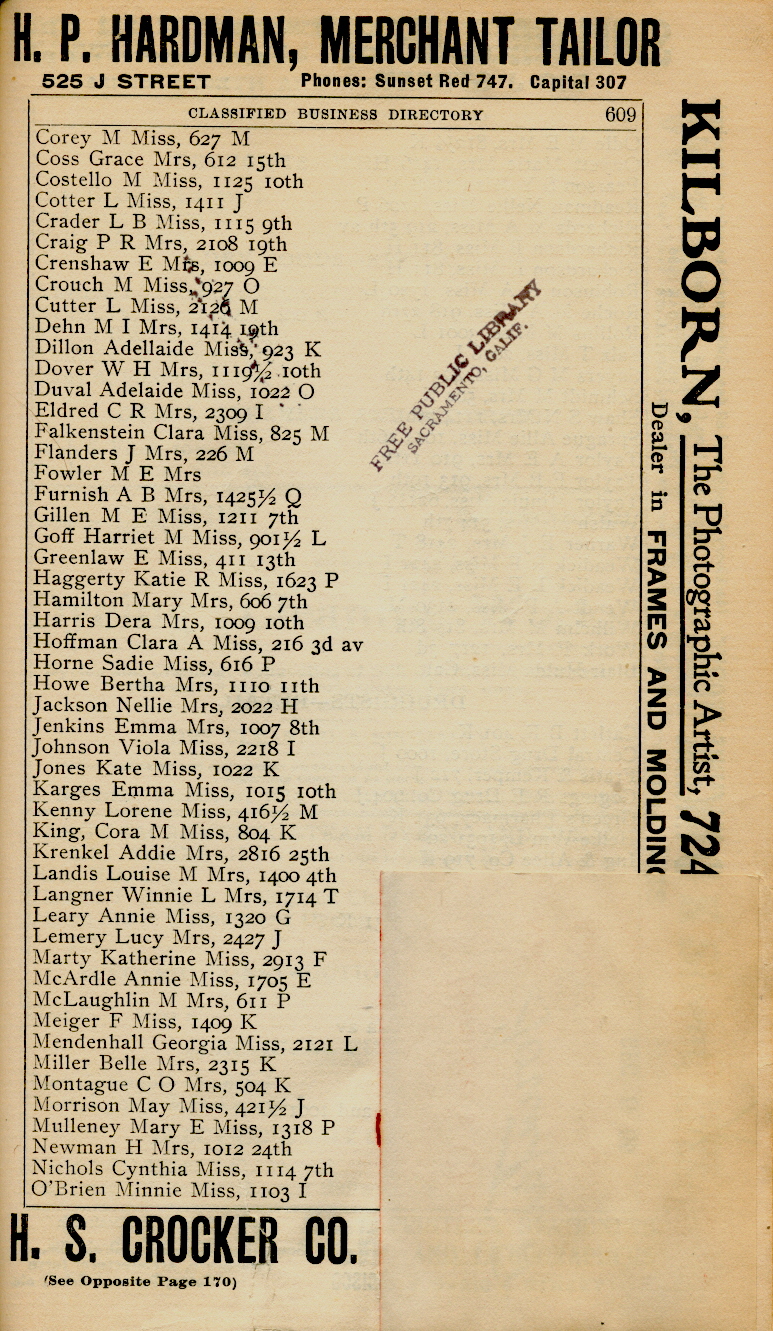 H. P. HARDMAN, MERCHANT TAILOR
525 J STREET Phones: Sunset Red 747. Capital 307
CLASSIFIED BUSINESS DIRECTORY 609
Corey M Miss, 627 M
Coss Grace Mrs, 612 15th
Costello M Miss, 1125 10th
Cotter L Miss, 1411 J
Crader L B Miss, 1115 9th
Craig P R Mrs, 2108 19th
Crenshaw E Mrs, 1009 E
Crouch M Miss, 927 O
Cutter L Miss, 2126 M
Dehn M I Mrs, 1414 19th
Dillon Adellaide Miss, 923 K
Dover W H Mrs, 1119½ 10th
Duval Adelaide Miss, 1022 O
Eldred C R Mrs, 2309 I
Falkenstein Clara Miss, 825 M
Flanders J Mrs, 226 M
Fowler M E Mrs
Furnish A B Mrs, 1425½ Q
Gillen M E Miss, 1211 7th
Goff Harriet M Miss, 901½ L
Greenlaw E Miss, 411 13th
Haggerty Katie R Miss, 1623 P
Hamilton Mary Mrs, 606 7th
Harris Dera Mrs, 1009 10th
Hoffman Clara A Miss, 216 3d av
Horne Sadie Miss, 616 P
Howe Bertha Mrs, 1110 11th
Jackson Nellie Mrs, 2022 H
Jenkins Emma Mrs, 1007 8th
Johnson Viola Miss, 2218 I
Jones Kate Miss, 1022 K
Karges Emma Miss, 1015 10th
Kenny Lorene Miss, 416½ M
King, Cora M Miss, 804 K
Krenkel Addie Mrs, 2816 25th
Landis Louise M Mrs, 1400 4th
Langner Winnie L Mrs, 1714 T
Leary Annie Miss, 1320 G
Lemery Lucy Mrs, 2427 J
Marty Katherine Miss, 2913 F
McArdle Annie Miss, 1705 E
McLaughlin M Mrs, 611 P
Meiger F Miss, 1409 K
Mendenhall Georgia Miss, 2121 L
Miller Belle Mrs, 2315 K
Montague C O Mrs, 504 K
Morrison May Miss, 421½ J
Mulleney Mary E Miss, 1318 P
Newman H Mrs, 1012 24th
Nichols Cynthia Miss, 1114 7th
O'Brien Minnie Miss, 1103 I
FREE PUBLIC LIBRARY
SACRAMENTO, CALIF.
KILBORN, The Photographic Artist, 724
Dealer in FRAMES AND MOLDIN
H. S. CROCKER CO.
(See Opposite Page 170)